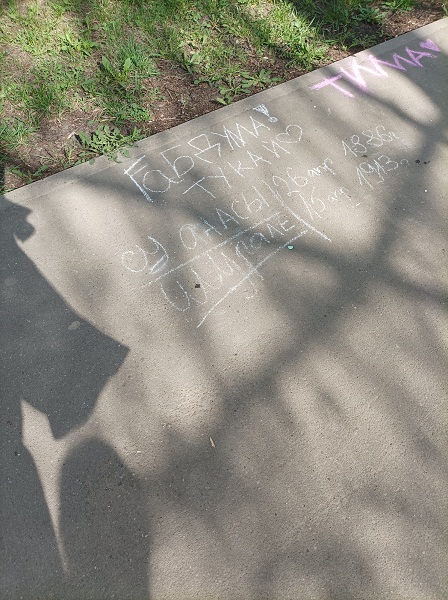 ТИМА♡
ГаБДУЛЛА!
ТУКАЙ♡
СУ АНАСЫ 26 апр 1886г
ШУРАЛЕ 15 апр 1913г